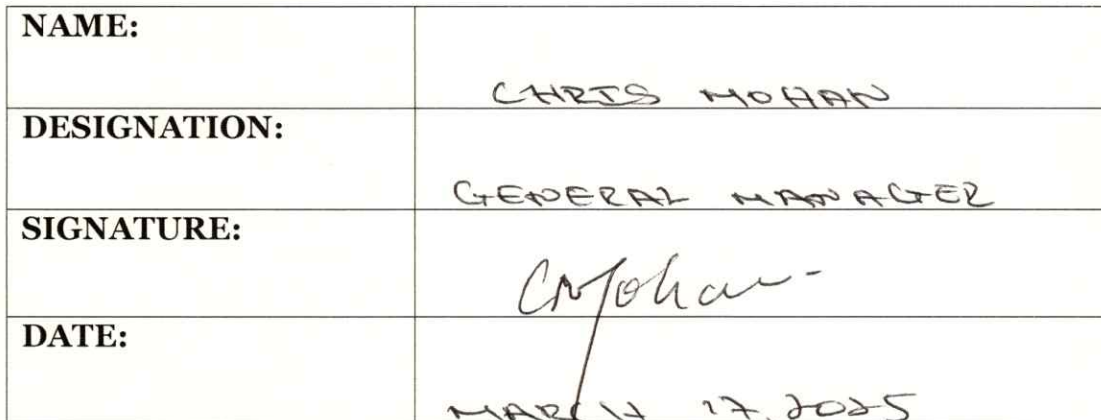 NAME:
CHRIS MOHAN
DESIGNATION:
GENERAL MANAGER
SIGNATURE:
CMohan
DATE:
MARCH 17, 2025